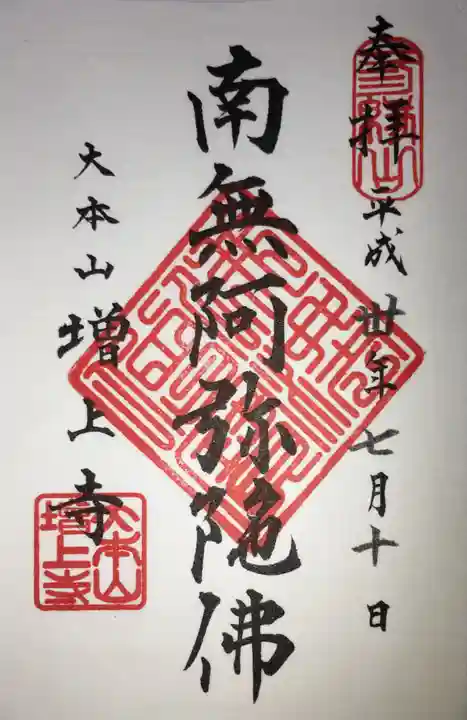 奉拝
平成卅年七月十日
南無阿弥陀佛
大本山増上寺
大本山増上寺